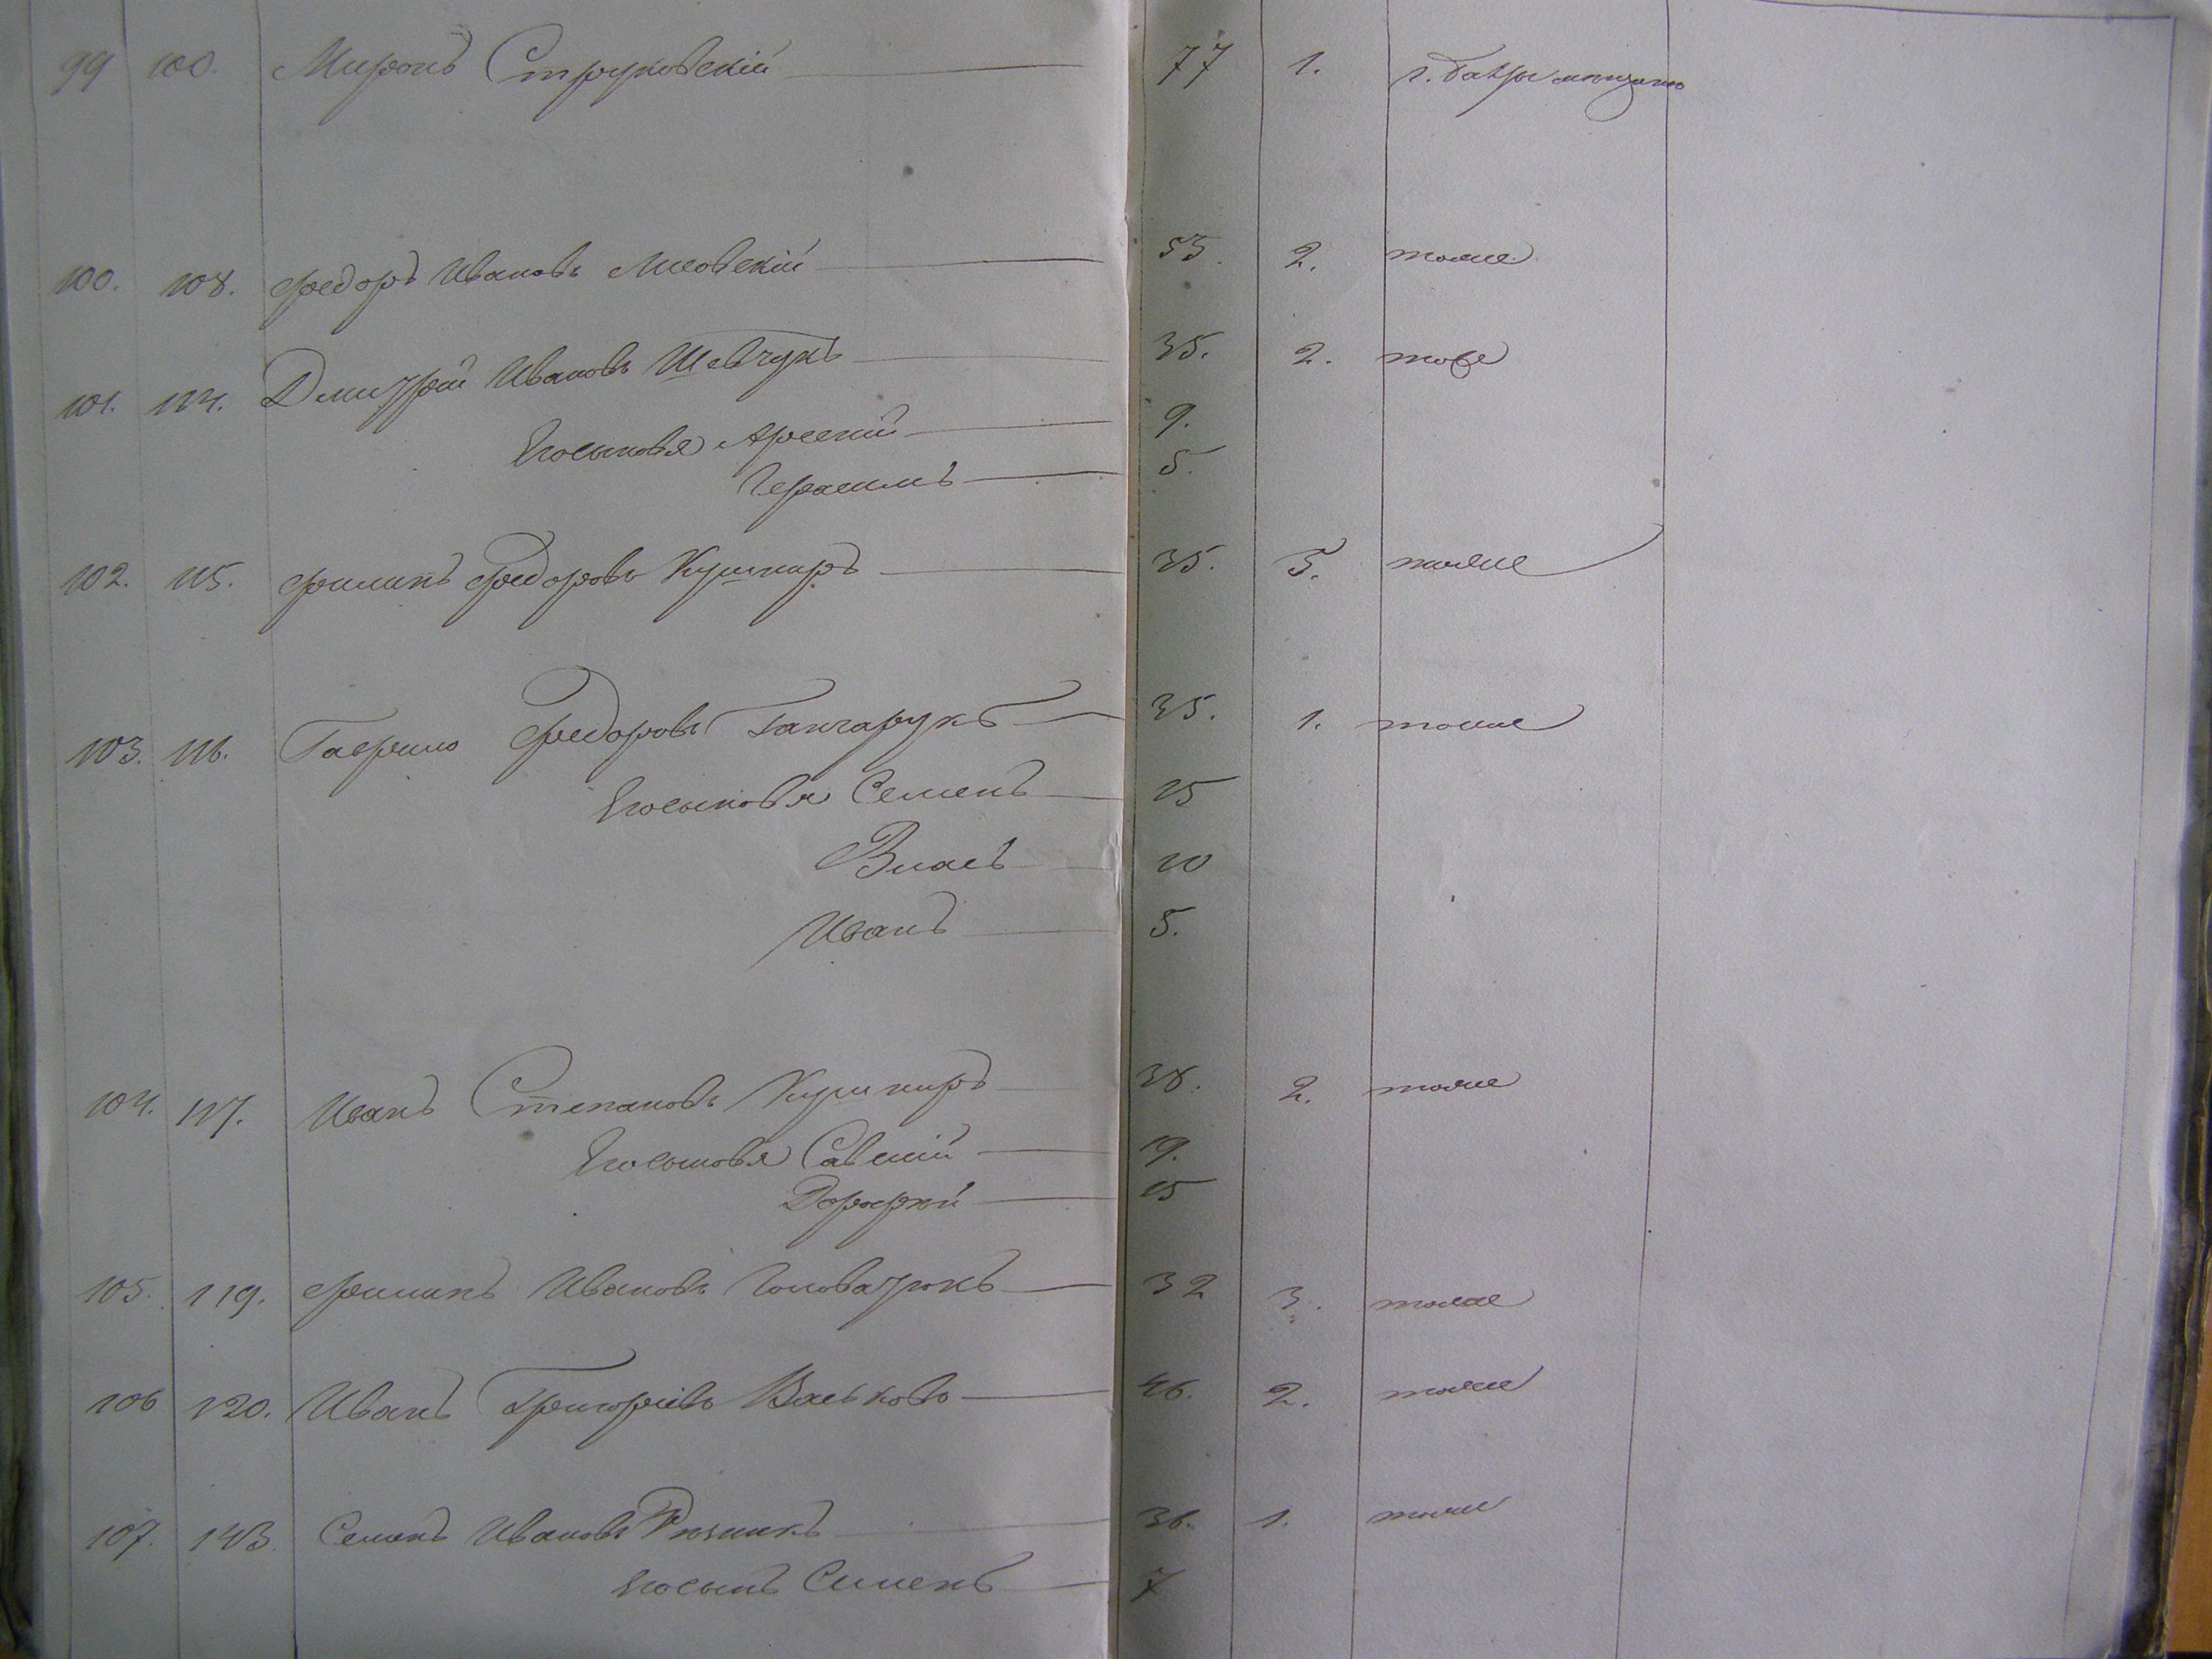 99 100. Миронъ Струковскій 77 1.
100. 108. Федоръ Ивановъ Лисовскій 53. 2. тоже
101. 114. Дмитрій Ивановъ Шевчукъ 35. 2. тоже
Егосыновья Арсеній 9.
Герасимъ 5.
102. 115. Филипъ Федоровъ Кушниръ 35. 3. тоже
103. 116. Гаврило Федоровъ Ганчарукъ 35. 1. тоже
Егосыновья Семенъ 15
Власъ 10
Иванъ 5.
104. 117. Иванъ Степановъ Кушниръ 38. 2. тоже
Егосыновья Савелій 19.
Дорофей 15
105. 119. Филипъ Ивановъ Головатюкъ 32 3. тоже
106 120. Иванъ Григорьевъ Васьково 46. 2. тоже
107. 143. Семенъ Ивановъ Резникъ 36. 1. тоже
Егосынъ Семенъ 7